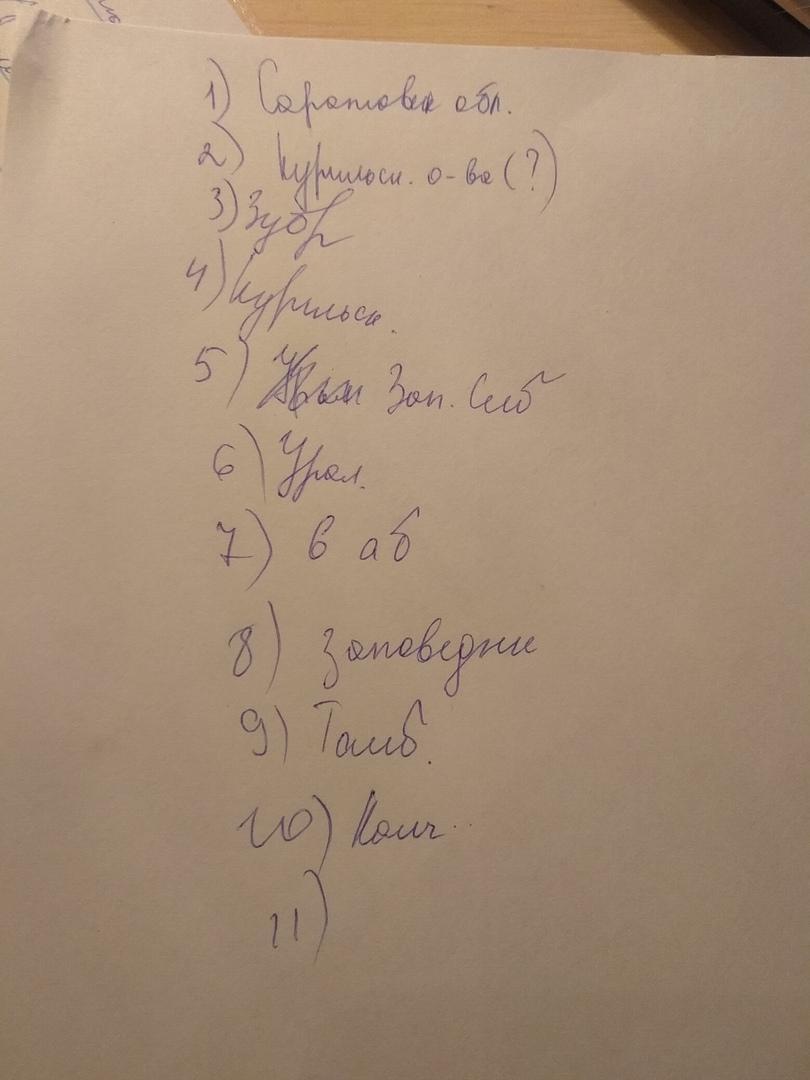 1) Саратовск обл.
2) Курильск. о-ва (?)
3) Зубр
4) Курильск.
5) Зап. Сиб
6) Урал.
7) 6 аб
8) Заповедни
9) Тамб.
10) Камч..
11)